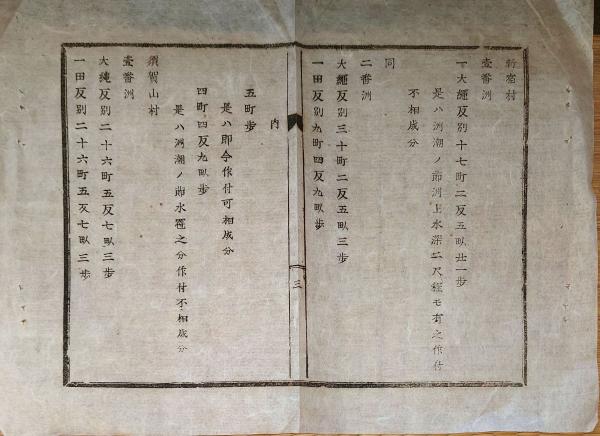 新宿村
壹番洲
一大繩反別十七町二反五畝廿一步
是ハ洲潮ノ節洲上水深二尺程モ有之作付
不相成分
同
二番洲
大繩反別三十町二反五畝三步
一田反別九町四反九畝步
三
内
五町步
是ハ即今作付可相成分
四町四反九畝步
是ハ洲潮ノ節水冠之分作付不相成分
須賀山村
壹番洲
大繩反別二十六町五反七畝三步
一田反別二十六町五反七畝三步